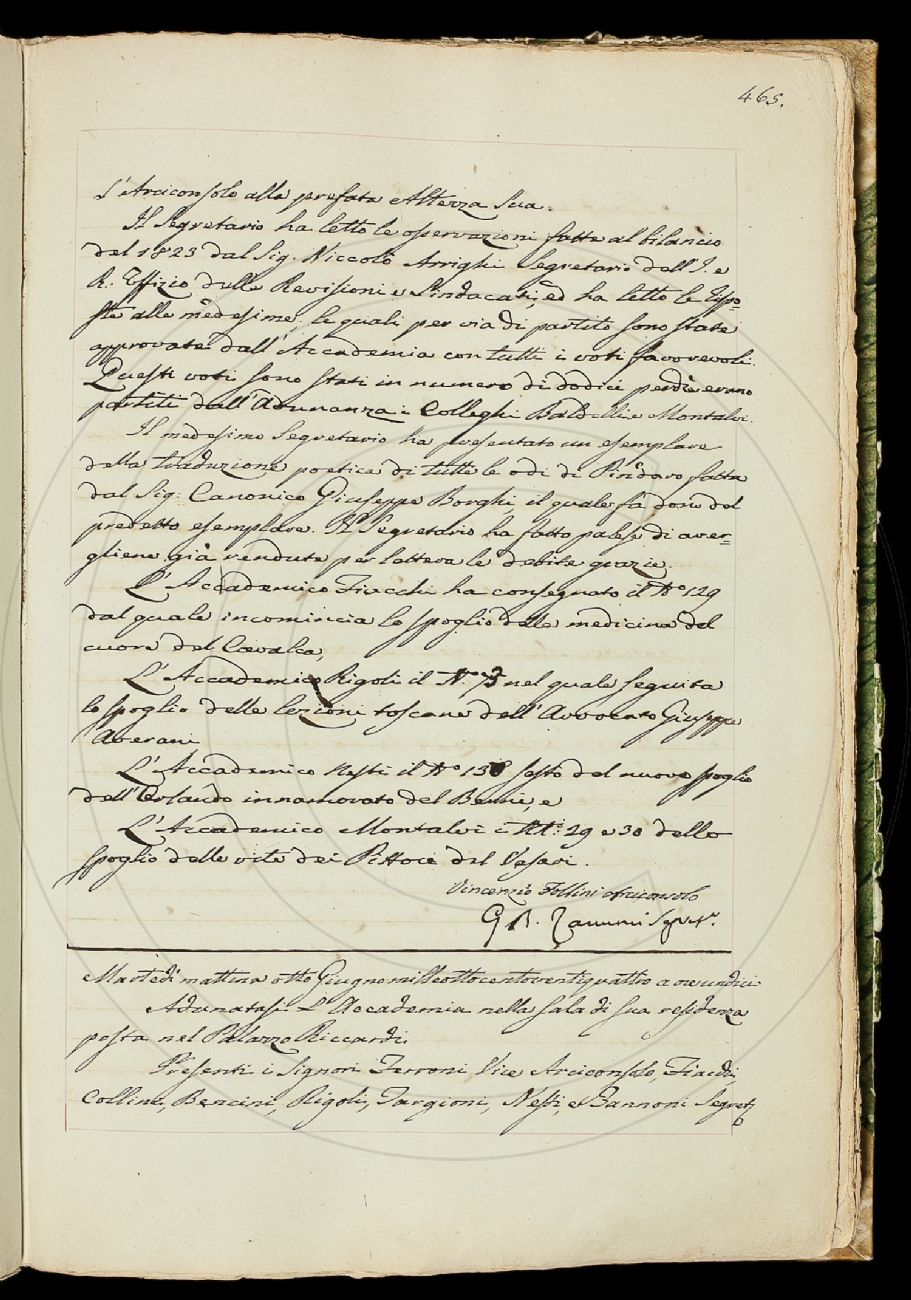 465.
L'Arciconsolo alla prefata Altezza Sua.
Il Segretario ha letto le osservazioni fatte al bilancio
del 1823 dal Sig. Niccolò Arrighi Segretario dell'I. e
R. Uffizio delle Revisioni e Sindacati, ed ha letto le rispo=
ste alle medesime, le quali per via di partito sono state
approvate dall'Accademia con tutti i voti favorevoli.
Questi voti sono stati in numero di dodici perchè erano
partiti dall'Adunanza i Colleghi Baldelli e Montalvi.
Il medesimo Segretario ha presentato un esemplare
della traduzione poetica di tutte le odi di Pindaro fatta
dal Sig: Canonico Giuseppe Borghi, il quale fa dono del
predetto esemplare. Il Segretario ha fatto palese di aver=
gliene già rendute per lettera le debite grazie.
L'Accademico Fiacchi ha consegnato il No 129
dal quale incomincia lo spoglio della medicina del
cuore del Cavalca,
L'Accademico Rigoli il No 3 nel quale seguita
lo spoglio delle lezioni toscane dell'Avvocato Giuseppe
Averani
L'Accademico Nesti il No 138 sesto del nuovo spoglio
dell'Orlando innamorato del Berni, e
L'Accademico Montalvi i NN: 29 e 30 dello
spoglio delle vite dei Pittori del Vasari.
Vincenzio Follini Arciconsolo
G. B. Zannoni Segret.o
Martedì mattina otto Giugno mille ottocentoventiquattro a ore undici
Adunatasi L'Accademia nella sala di sua residenza
posta nel Palazzo Riccardi.
Presenti i Signori Ferroni Vice Arciconsolo, Fiacchi,
Collini, Bencini, Rigoli, Targioni, Nesti, e Zannoni Segret.o